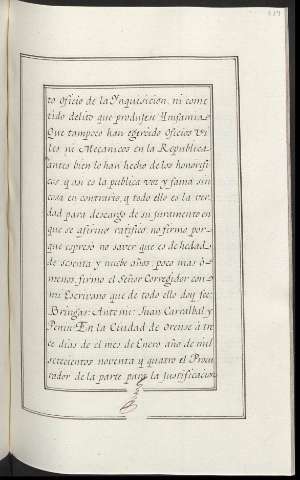 to Oficio de la Ynquisicion, ni come
tido delito que produjese Ynfamia.
Que tampoco han egercido Oficios Vi
les ni Mecanicos en la Republica
antes bien lo han hecho de los honorifi
cos y asi es la publica voz y fama sin
cosa en contrario, y todo ello es la ver
dad para descargo de su juramento en
que se afirmo ratifico no firmo por
que espreso no saver que es de hedad
de sesenta y nuebe años poco mas ô
menos, firmo el Señor Corregidor con
mi Escrivano que de todo ello doy fee:
Bringas: Ante mi: Juan Carvalbal y
Penin: En la Ciudad de Orense â tre
ce dias de el mes de Enero año de mil
setecientos noventa y quatro el Procu
rador de la parte para la Justificacion